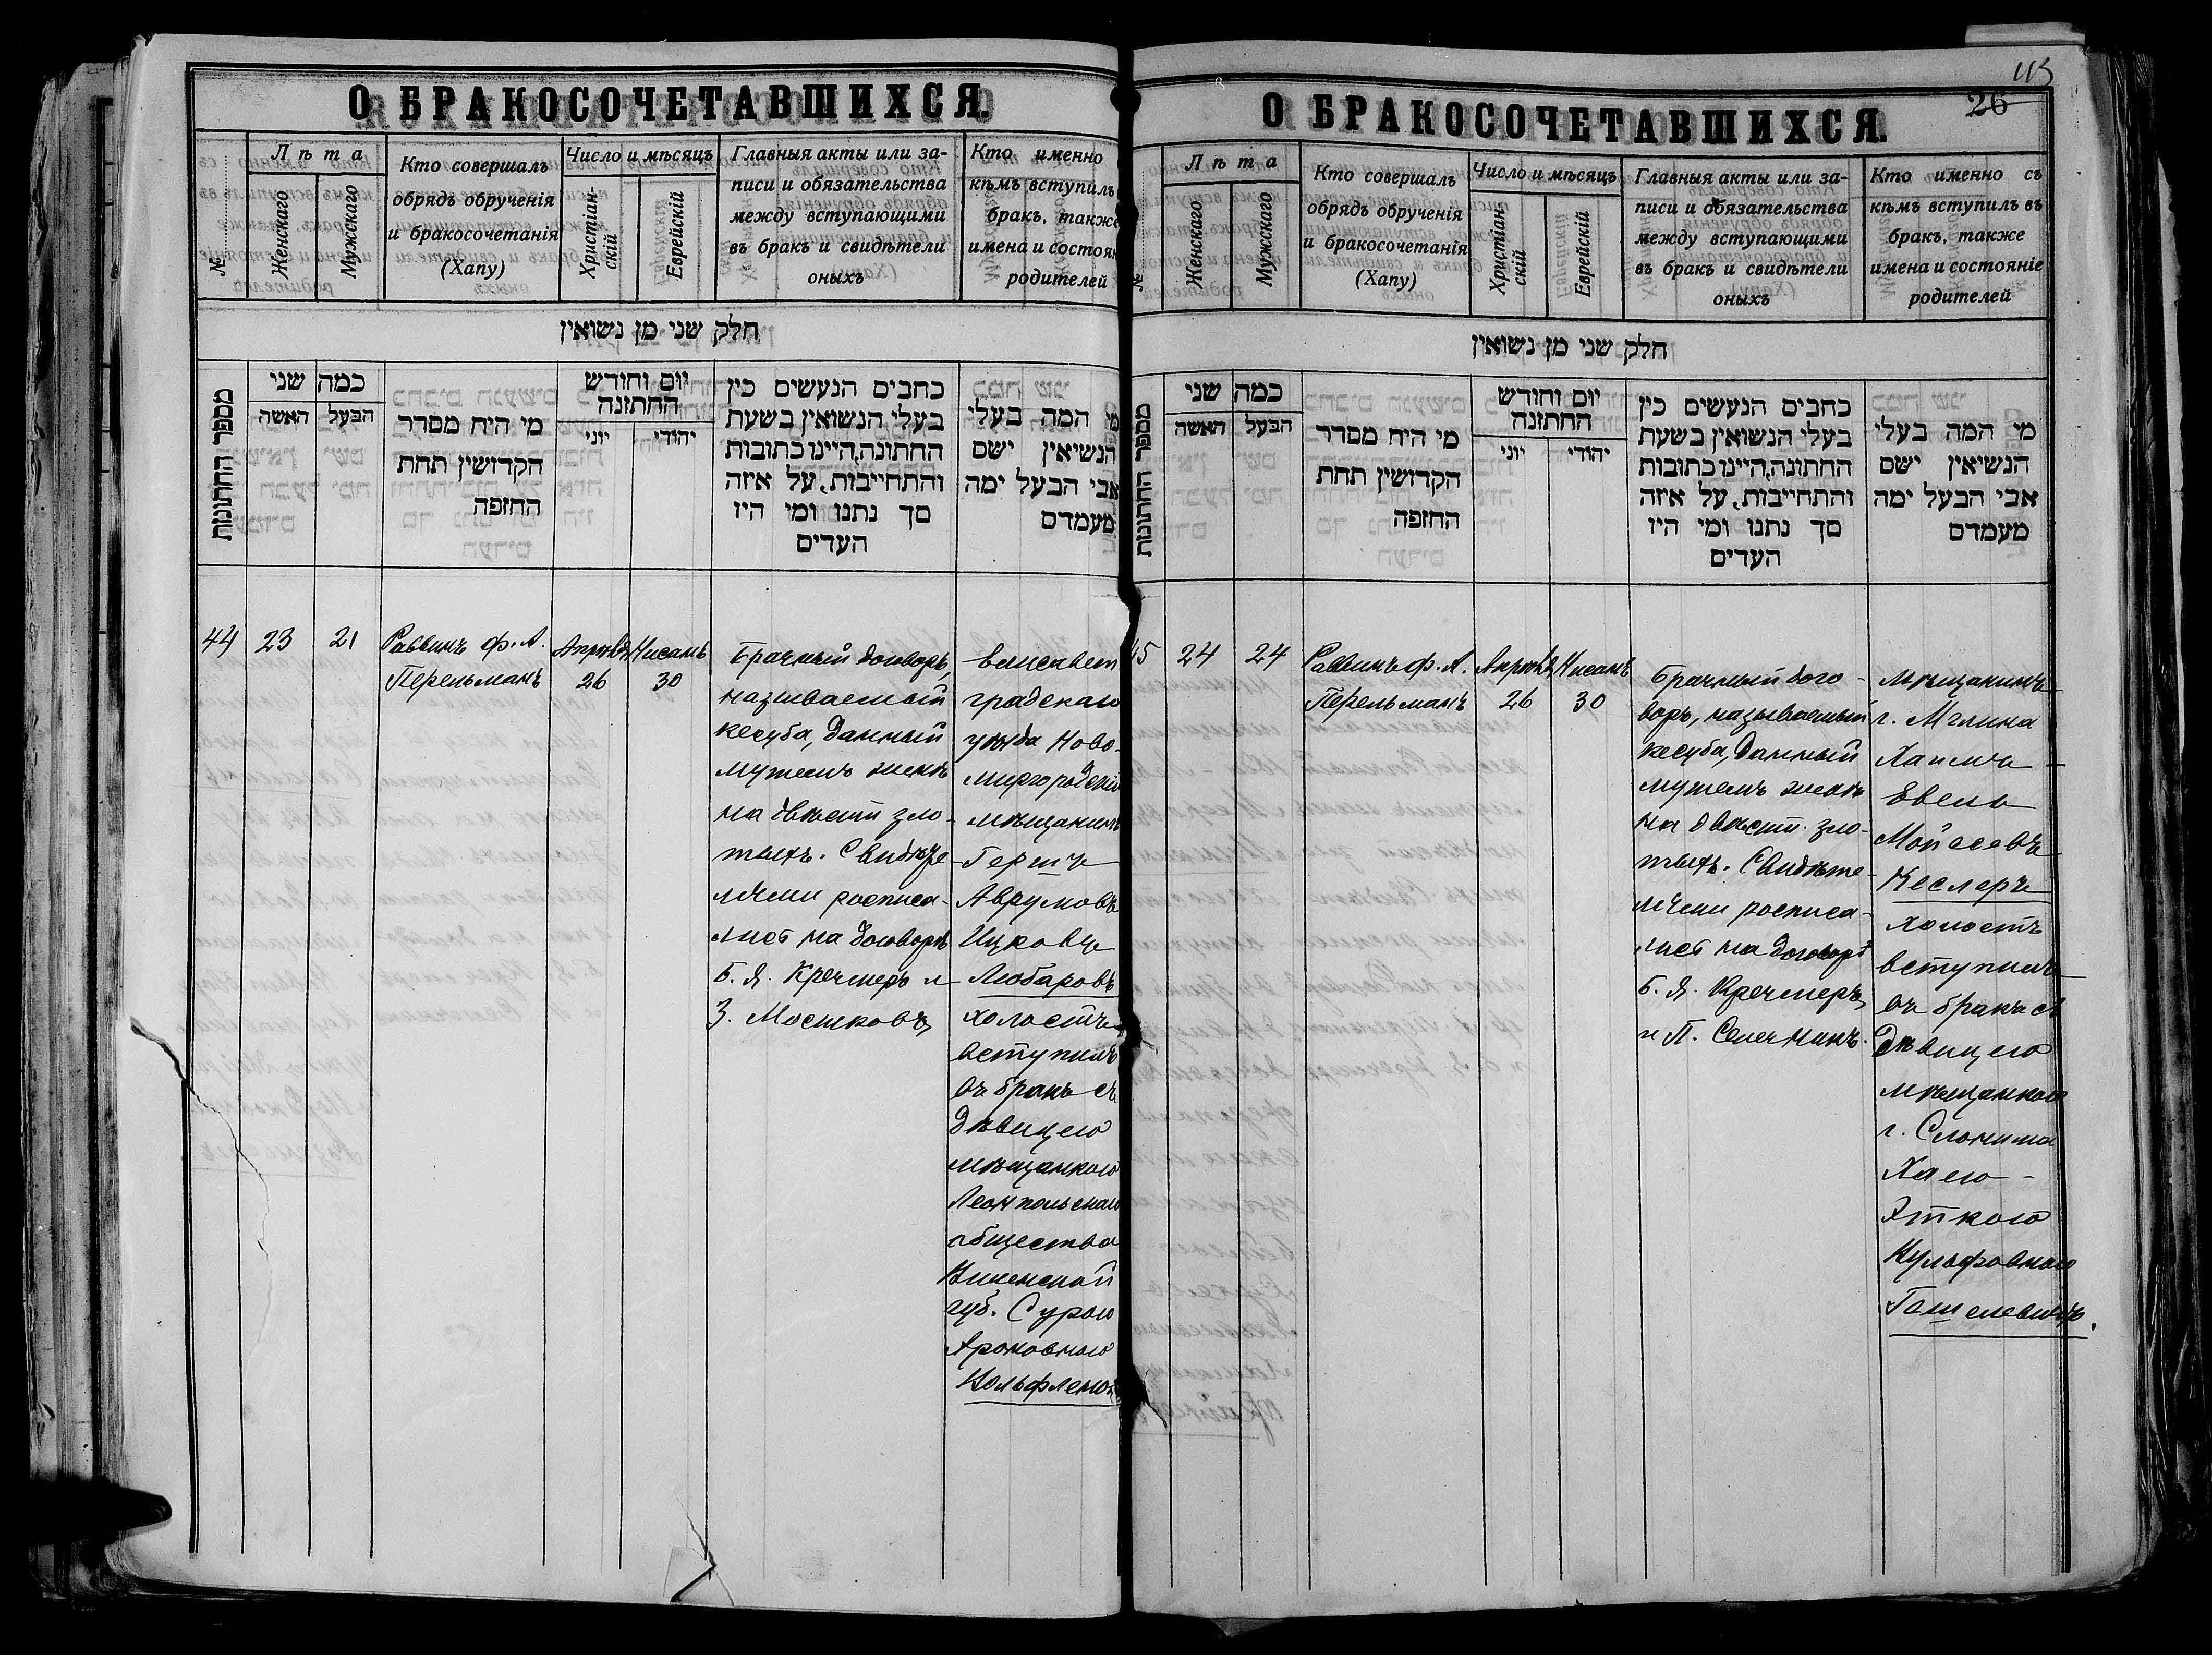 О БРАКОСОЧЕТАВШИХСЯ.
№
Лѣта
Женскаго
Мужскаго
Кто совершалъ
обрядъ обрученія
и бракосочетанія
(Хапу)
Число и мѣсяцъ
Христіан-
скій
Еврейскій
Главныя акты или за-
писи и обязательства
между вступающими
въ бракъ и свидѣтели
оныхъ
Кто именно
кѣмъ вступилъ
бракъ, также
имена и состоян
родителей
חלק שני מן נשואין
מספר החתונות
כמה שני
האשה
הבעל
מי היח מסדר
הקדושין תחת
החופה
יום וחודש
החתונה
יוני
יהודי
כחבים הנעשים כין
בעלי הנשואין בשעת
החתונה, היינו כתובות
והתחייבות, על איזה
סך נתנו ומי היו
העדים
מי המה בעלי
הנשיאין ישם
אבי הבעל ימה
מעמדם
44
23
21
Раввинъ Ф. А.
Перельманъ
Апрѣль
26
Нисанъ
30
Брачный договоръ,
называемый
кесуба, данный
мужемъ женѣ
на двѣсти зло-
тыхъ. Свидѣте-
лями росписа-
лись на договорѣ
Б. Я. Кречмеръ и
З. Мошковъ
Елисавет
градскаго
уѣзда Ново-
миргородскій
мѣщанинъ
Гершъ
Аврумовъ
Ицковъ
Любаровъ
холостъ
вступилъ
въ бракъ съ
дѣвицею
мѣщанкою
Леонпольскаго
общества
Виленской
губ. Сурою
Ароновною
Вольфсонъ
О БРАКОСОЧЕТАВШИХСЯ.
115
26
№
Лѣта
Женскаго
Мужскаго
Кто совершалъ
обрядъ обрученія
и бракосочетанія
(Хапу)
Число и мѣсяцъ
Христіан-
скій
Еврейскій
Главныя акты или за-
писи и обязательства
между вступающими
въ бракъ и свидѣтели
оныхъ
Кто именно съ
кѣмъ вступилъ въ
бракъ, также
имена и состояніе
родителей
חלק שני מן נשואין
מספר החתונות
כמה שני
האשה
הבעל
מי היח מסדר
הקדושין תחת
החופה
יום וחודש
החתונה
יוני
יהודי
כחבים הנעשים כין
בעלי הנשואין בשעת
החתונה, היינו כתובות
והתחייבות, על איזה
סך נתנו ומי היו
העדים
מי המה בעלי
הנשיאין ישם
אבי הבעל ימה
מעמדם
45
24
24
Раввинъ Ф. А.
Перельманъ
Апрѣль
26
Нисанъ
30
Брачный дого-
воръ, называемый
кесуба, данный
мужемъ женѣ
на двѣсти зло-
тыхъ. Свидѣте-
лями росписа-
лись на договорѣ
Б. Я. Кречмеръ
и П.
мѣщанинъ
г. Мглина
Хаимъ-
Евель
Мойсеевъ
Кеслеръ
холостъ
вступилъ
въ бракъ съ
дѣвицею
мѣщанкою
г. Слонима
Хаею-
Эткою
Вульфовною
Гошелевичъ.